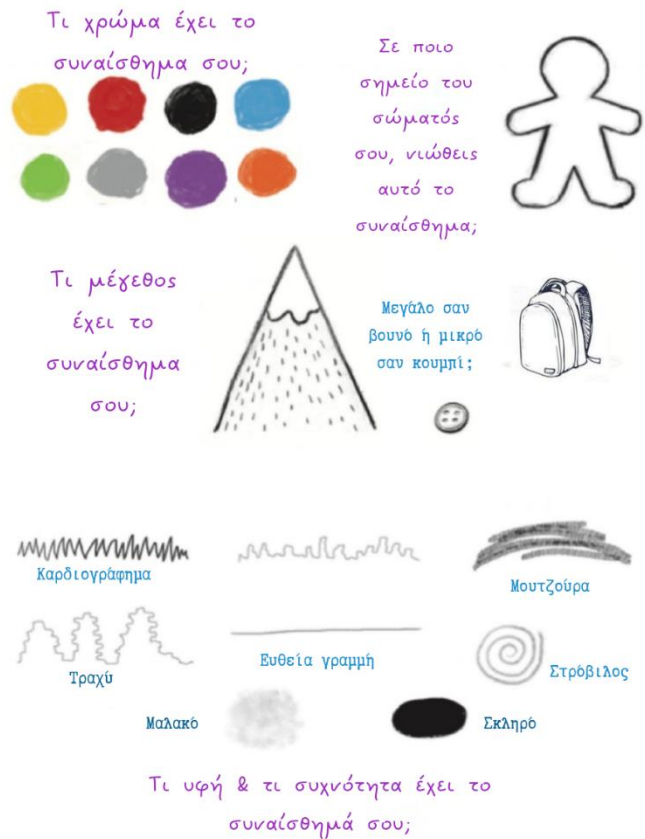 Τι χρώμα έχει το
συναίσθημα σου;
Σε ποιο
σημείο του
σώματός
σου, νιώθεις
αυτό το
συναίσθημα;
Τι μέγεθος
έχει το
συναίσθημα
σου;
Μεγάλο σαν
βουνό ή μικρό
σαν κουμπί;
Καρδιογράφημα
Μουτζούρα
Τραχύ
Ευθεία γραμμή
Στρόβιλος
Μαλακό
Σκληρό
Τι υφή & τι συχνότητα έχει το
συναίσθημά σου;